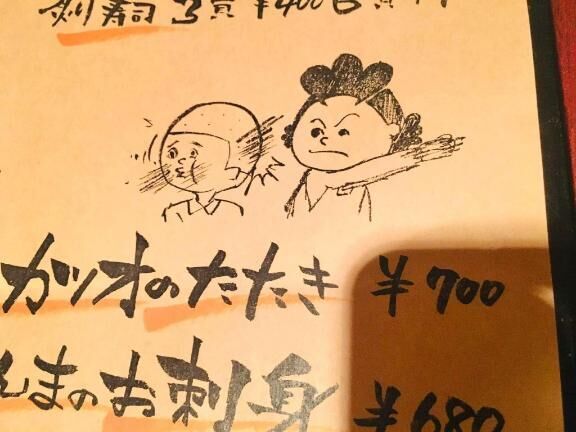 寿司 3貫 ¥400
カツオのたたき ¥700
んまのお刺身 ¥680